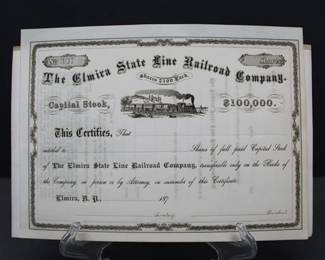 No.
Shares
The Elmira State Line Railroad Company.
Shares $100 Each.
Capital Stock, $100,000.
This Certifies, That
entitled to Shares of full paid Capital Stock
of The Elmira State Line Railroad Company, transferable only on the Books of
the Company, in person or by Attorney, on surrender of this Certificate.
Elmira, N. Y., 187
Secretary. President.